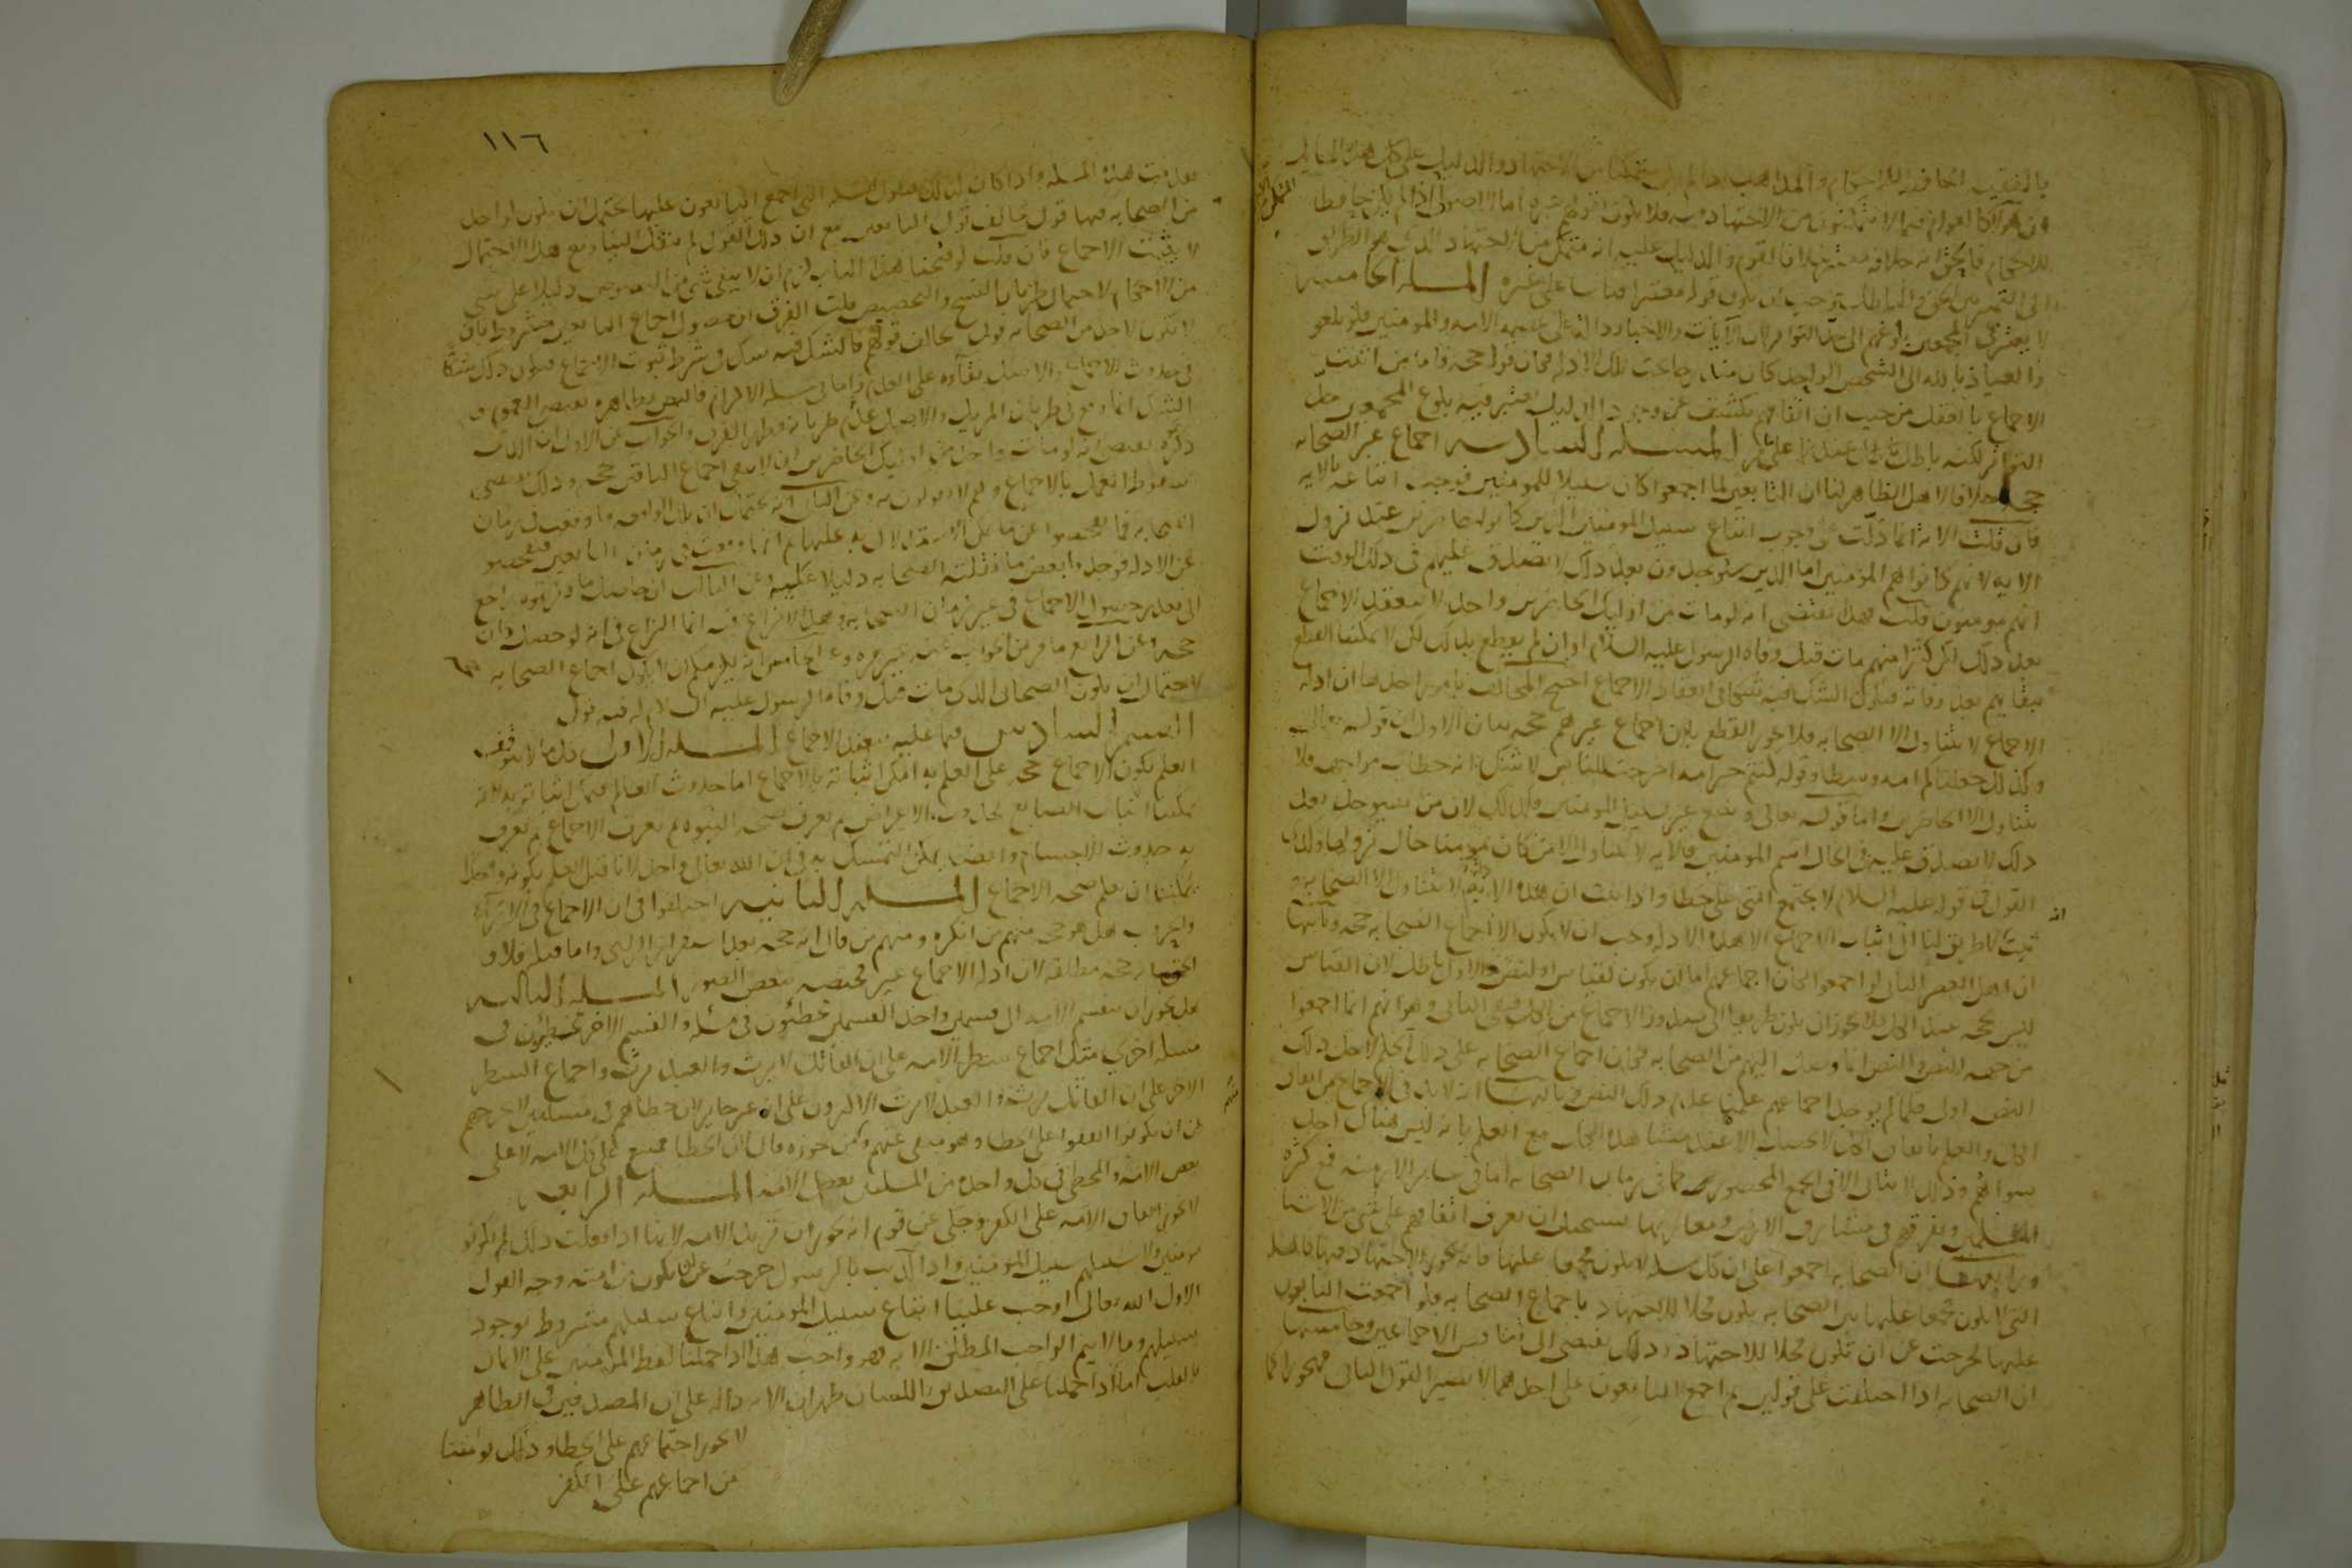 بالفقيه الحافظ للاحكام والمذاهب اذا لم يكن متمكنا من الاجتهاد والدليل على كل هذه المسائل
ان هؤلا كالعوام فيما لا يتمكنون من الاجتهاد فيه فلا يكون بقولهم عبره اما الاصولى اذا لم يكن حافظا
للاحكام فالحق ان خلافه معتبر خلافا لقوم والدليل عليه انه متمكن من الاجتهاد الذى هو الطريق
الى التمييز بين الحق والباطل فوجب ان يكون قوله معتبرا قياسا على غيره المسله الخامسه
لا يعتبر فى المجمعين بلوغهم الى حد التواتر لان الايات والاخبار داله على عصمه الامه والمومنين فلو بلغوا
والعياذ بالله الى الشخص الواحد كان مندرجا تحت تلك الادله فكان قوله حجه فاما من اثبت
الاجماع بالعقل من حيث ان اتفاقهم يكشف عن وجود الدليل اعتبر فيه بلوغ المجمعين حد
التواتر لكنه باطل عندنا على ما مر المسله السادسه اجماع غير الصحابه
حجه خلافا لاهل الظاهر لنا ان التابعين لما اجمعوا كان سبيلا للمومنين فوجب اتباعه بالايه
فان قلت الايه انما دلت على وجوب اتباع سبيل المومنين الذين كانوا حاضرين عند نزول
الايه لانهم كانوا هم المؤمنين اما الذين سيوجدون بعد ذلك لا يصدق عليهم فى ذلك الوقت
انهم مومنون قلت فهذا يقتضى انه لو مات من اوليك الحاضرين واحد لا ينعقد الاجماع
بعد ذلك لكن كثيرا منهم مات قبل وفاه الرسول عليه السلام او ان لم يقطع بذلك لكن لا يمكننا القطع
ببقايهم بعد وفاته فيكون الشك فيه شكا فى انعقاد الاجماع احتج المخالف بامور احدها ان ادله
الاجماع لا تتناول الا الصحابه فلا يجوز القطع بان اجماع غيرهم حجه بيان الاول ان قوله تعالى
وكذلك جعلناكم امه وسطا وقوله كنتم خير امه اخرجت للناس لا شك انه خطاب مواجهه فلا
يتناول الا الحاضرين واما قوله تعالى ويتبع غير سبيل المومنين فكذلك لان من سيوجد بعد
ذلك لا يصدق عليه فى الحال اسم المومنين فالايه لا تتناول الا من كان مومنا حال نزولها وكذلك
القول فى قوله عليه السلام لا تجتمع امتى على خطا واذا ثبت ان هذه الادله لا تتناول الا الصحابه و
ثبت انه لا طريق لنا الى اثبات الاجماع الا هذه الادله وجب ان لا يكون الا اجماع الصحابه حجه وثانيها
ان اهل العصر الثانى لو اجمعوا لكان اجماعهم اما ان يكون لقياس او لنص والاول باطل لان القياس
ليس بحجه عند الكل فلا يجوز ان يكون طريقا الى صدور الاجماع من الكل فبقى الثانى وهو انهم انما اجمعوا
من جهه النص والنص انما وصل اليهم من الصحابه فكان اجماع الصحابه على ذلك الحكم لاجل ذلك
النص اولى فلما لم يوجد اجماعهم علمنا عدم ذلك النص وثالثها انه لا بد فى الاجماع من اتفاق
الكل والعلم باتفاق الكل لا يحصل الا عند مشاهده الكل مع العلم بانه ليس هناك احد
سواهم وذلك لا يتاتى الا فى الجمع المحصور كما فى زمان الصحابه اما فى ساير الازمنه فمع كثره
المسلمين وتفرقهم فى مشارق الارض ومغاربها يستحيل ان يعرف اتفاقهم على شى من الاشيا
ورابعها ان الصحابه اجمعوا على ان كل مسله لا تكون مجمعا عليها فانه يجوز الاجتهاد فيها فالمسله
التى لا تكون مجمعا عليها بين الصحابه تكون محلا للاجتهاد باجماع الصحابه فلو اجمعت التابعون
عليها لخرجت عن ان تكون محلا للاجتهاد وذلك يفضى الى تناقض الاجماعين وخامسها
ان الصحابه اذا اختلفت على قولين ثم اجمع التابعون على احدهما لا يصير القول الثانى مهجورا كما
١١٦
تقدمت هذه المسله واذا كان كذلك فنقول المسله التى اجمع التابعون عليها يحتمل ان يكون لواحد
من الصحابه فيها قول يخالف قول التابعين مع ان ذلك القول لم ينقل الينا ومع هذا الاحتمال
لا يثبت الاجماع فان قلت لو فتحنا هذا الباب لزم ان لا يبقى شى من النصوص دليلا على شى
من الاحكام لاحتمال طريان النسخ والتخصيص قلت الفرق ان حصول اجماع التابعين مشروط بان
لا يكون لاحد من الصحابه قول يخالف قولهم فالشك فيه شك فى شرط ثبوت الاجماع فيكون ذلك شكا
فى حدوث الاجماع والاصل بقاؤه على العدم واما فى مسله الالزام فالنص بظاهره يقتضى العموم و
الشك انما وقع فى طريان المزيل والاصل عدم طريانه فظهر الفرق والجواب عن الاول ان الذى
ذكره يقتضى انه لو مات واحد من اوليك الحاضرين ان لا يبقى اجماع الباقين حجه وذلك يقتضى
سقوط العمل بالاجماع وهم لا يقولون به وعن الثانى انه يحتمل ان تلك الواقعه ما وقعت فى زمان
الصحابه فما تفحصوا عن ما يمكن الاستدلال به عليها ثم انها وقعت فى زمان التابعين فتفحصوا
عن الادله فوجدوا بعض ما نقلته الصحابه دليلا عليه وعن الثالث ان حاصل ما ذكرتموه راجع
الى تعذر حصول الاجماع فى غير زمان الصحابه وهذا لا نزاع فيه انما النزاع فى انه لو حصل كان
حجه وعن الرابع ما مر من الجواب عنه غير مره وعن الخامس انه يلزمكم ان لا يكون اجماع الصحابه حجه
لاحتمال ان يكون الصحابى الذى مات قبل وفاه الرسول عليه السلام له فيه قول
القسم السادس فيما عليه ينعقد الاجماع المسله الاولى كل ما لا يتوقف
العلم بكون الاجماع حجه على العلم به امكن اثباته بالاجماع اما حدوث العالم فيمكن اثباته به لانه
يمكننا اثبات الصانع بحدوث الاعراض ثم نعرف صحه النبوه ثم نعرف الاجماع ثم نعرف
به حدوث الاجسام وايضا يمكن التمسك به فى ان الله تعالى واحد لانا قبل العلم بكونه واحدا
يمكننا ان نعلم صحه الاجماع المسله الثانيه اختلفوا فى ان الاجماع فى الارآء
والحروب هل هو حجه منهم من انكره ومنهم من قال انه حجه بعد استقرار الراى واما قبله فلا و
الحق انه حجه مطلقه لان ادله الاجماع غير مختصه ببعض الصور المسله الثالثه
هل يجوز ان تنقسم الامه الى قسمين واحد القسمين مخطئون فى مسله والقسم الاخر مخطئون فى
مسله اخرى مثل اجماع شطر الامه على ان القاتل لا يرث والعبد يرث واجماع الشطر
الاخر على ان القاتل يرث والعبد لا يرث الاكثرون على انه غير جايز لان خطاهم فى مسلتين لا يخرجهم
عن ان يكونوا اتفقوا على الخطا وهو منفى عنهم ومن جوزه قال ان الخطا ممتنع على كل الامه لا على
بعض الامه والمخطى فى كل واحده من المسلتين بعض الامه المسله الرابعه
لا يجوز اتفاق الامه على الكفر وحكى عن قوم انه يجوز ان ترتد الامه لانها اذا فعلت ذلك لم يكونوا
مومنين ولا سبيلهم سبيل المومنين واذا كذبت بالرسول خرجت عن ان يكون من امته وجه القول
الاول الله تعالى اوجب علينا اتباع سبيل المومنين واتباع سبيلهم مشروط بوجود
سبيلهم وما لا يتم الواجب المطلق الا به فهو واجب هذا اذا حملنا لفظ المومنين على الايمان
بالقلب اما اذا حملنا على التصديق باللسان ظهر ان الايه داله على ان المصدقين فى الظاهر
لا يجوز اجتماعهم على الخطا وذلك يومننا
من اجماعهم على الكفر